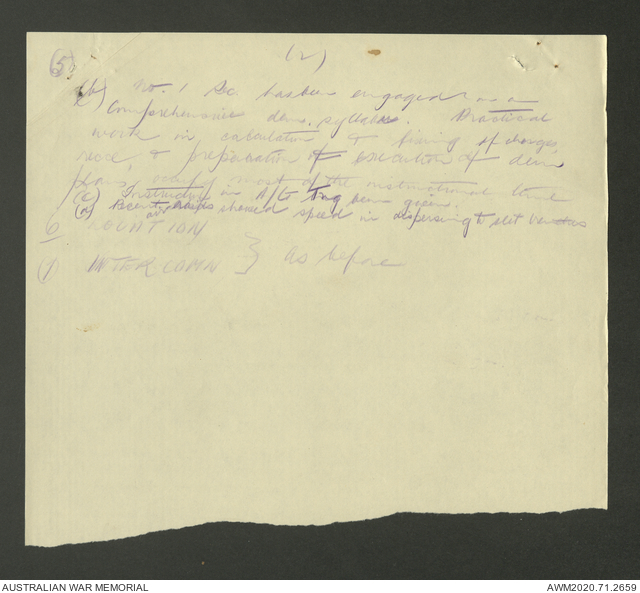 (5) (2)
(b) No. 1 Sec has been engaged on a
Comprehensive dem. syllabus. Practical
work in calculation & firing of charges,
recce, & preparation & execution of dem
plans, occupy most of the instructional time
(c) Instruction in A/G Tng been given.
(d) Recent air raids showed speed in dispersing to slit trenches
6 LOCATION
(7) INTER COMN } as before
AUSTRALIAN WAR MEMORIAL
AWM2020.71.2659